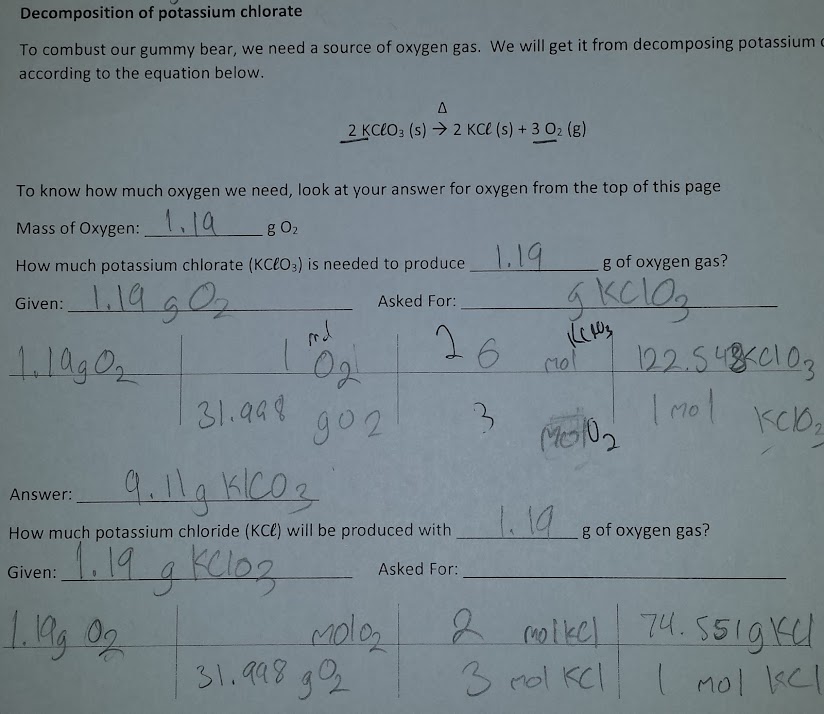 Decomposition of potassium chlorate
To combust our gummy bear, we need a source of oxygen gas. We will get it from decomposing potassium
according to the equation below.
Δ
2 KCℓO₃ (s) → 2 KCℓ (s) + 3 O₂ (g)
To know how much oxygen we need, look at your answer for oxygen from the top of this page
Mass of Oxygen: 1.19 g O₂
How much potassium chlorate (KCℓO₃) is needed to produce 1.19 g of oxygen gas?
Given: 1.19 g O₂ Asked For: g KClO₃
1.19g O₂ 1 mol O₂ 2 6 mol KClO₃ 122.548 KClO₃
31.998 g O2 3 mol O₂ 1 mol KClO₂
Answer: 9.11g KlCO₃
How much potassium chloride (KCℓ) will be produced with 1.19 g of oxygen gas?
Given: 1.19 g KClO₃ Asked For:
1.19g O₂ mol O₂ 2 mol KCl 74.551g KCl
31.998 g O₂ 3 mol KCl 1 mol KCl